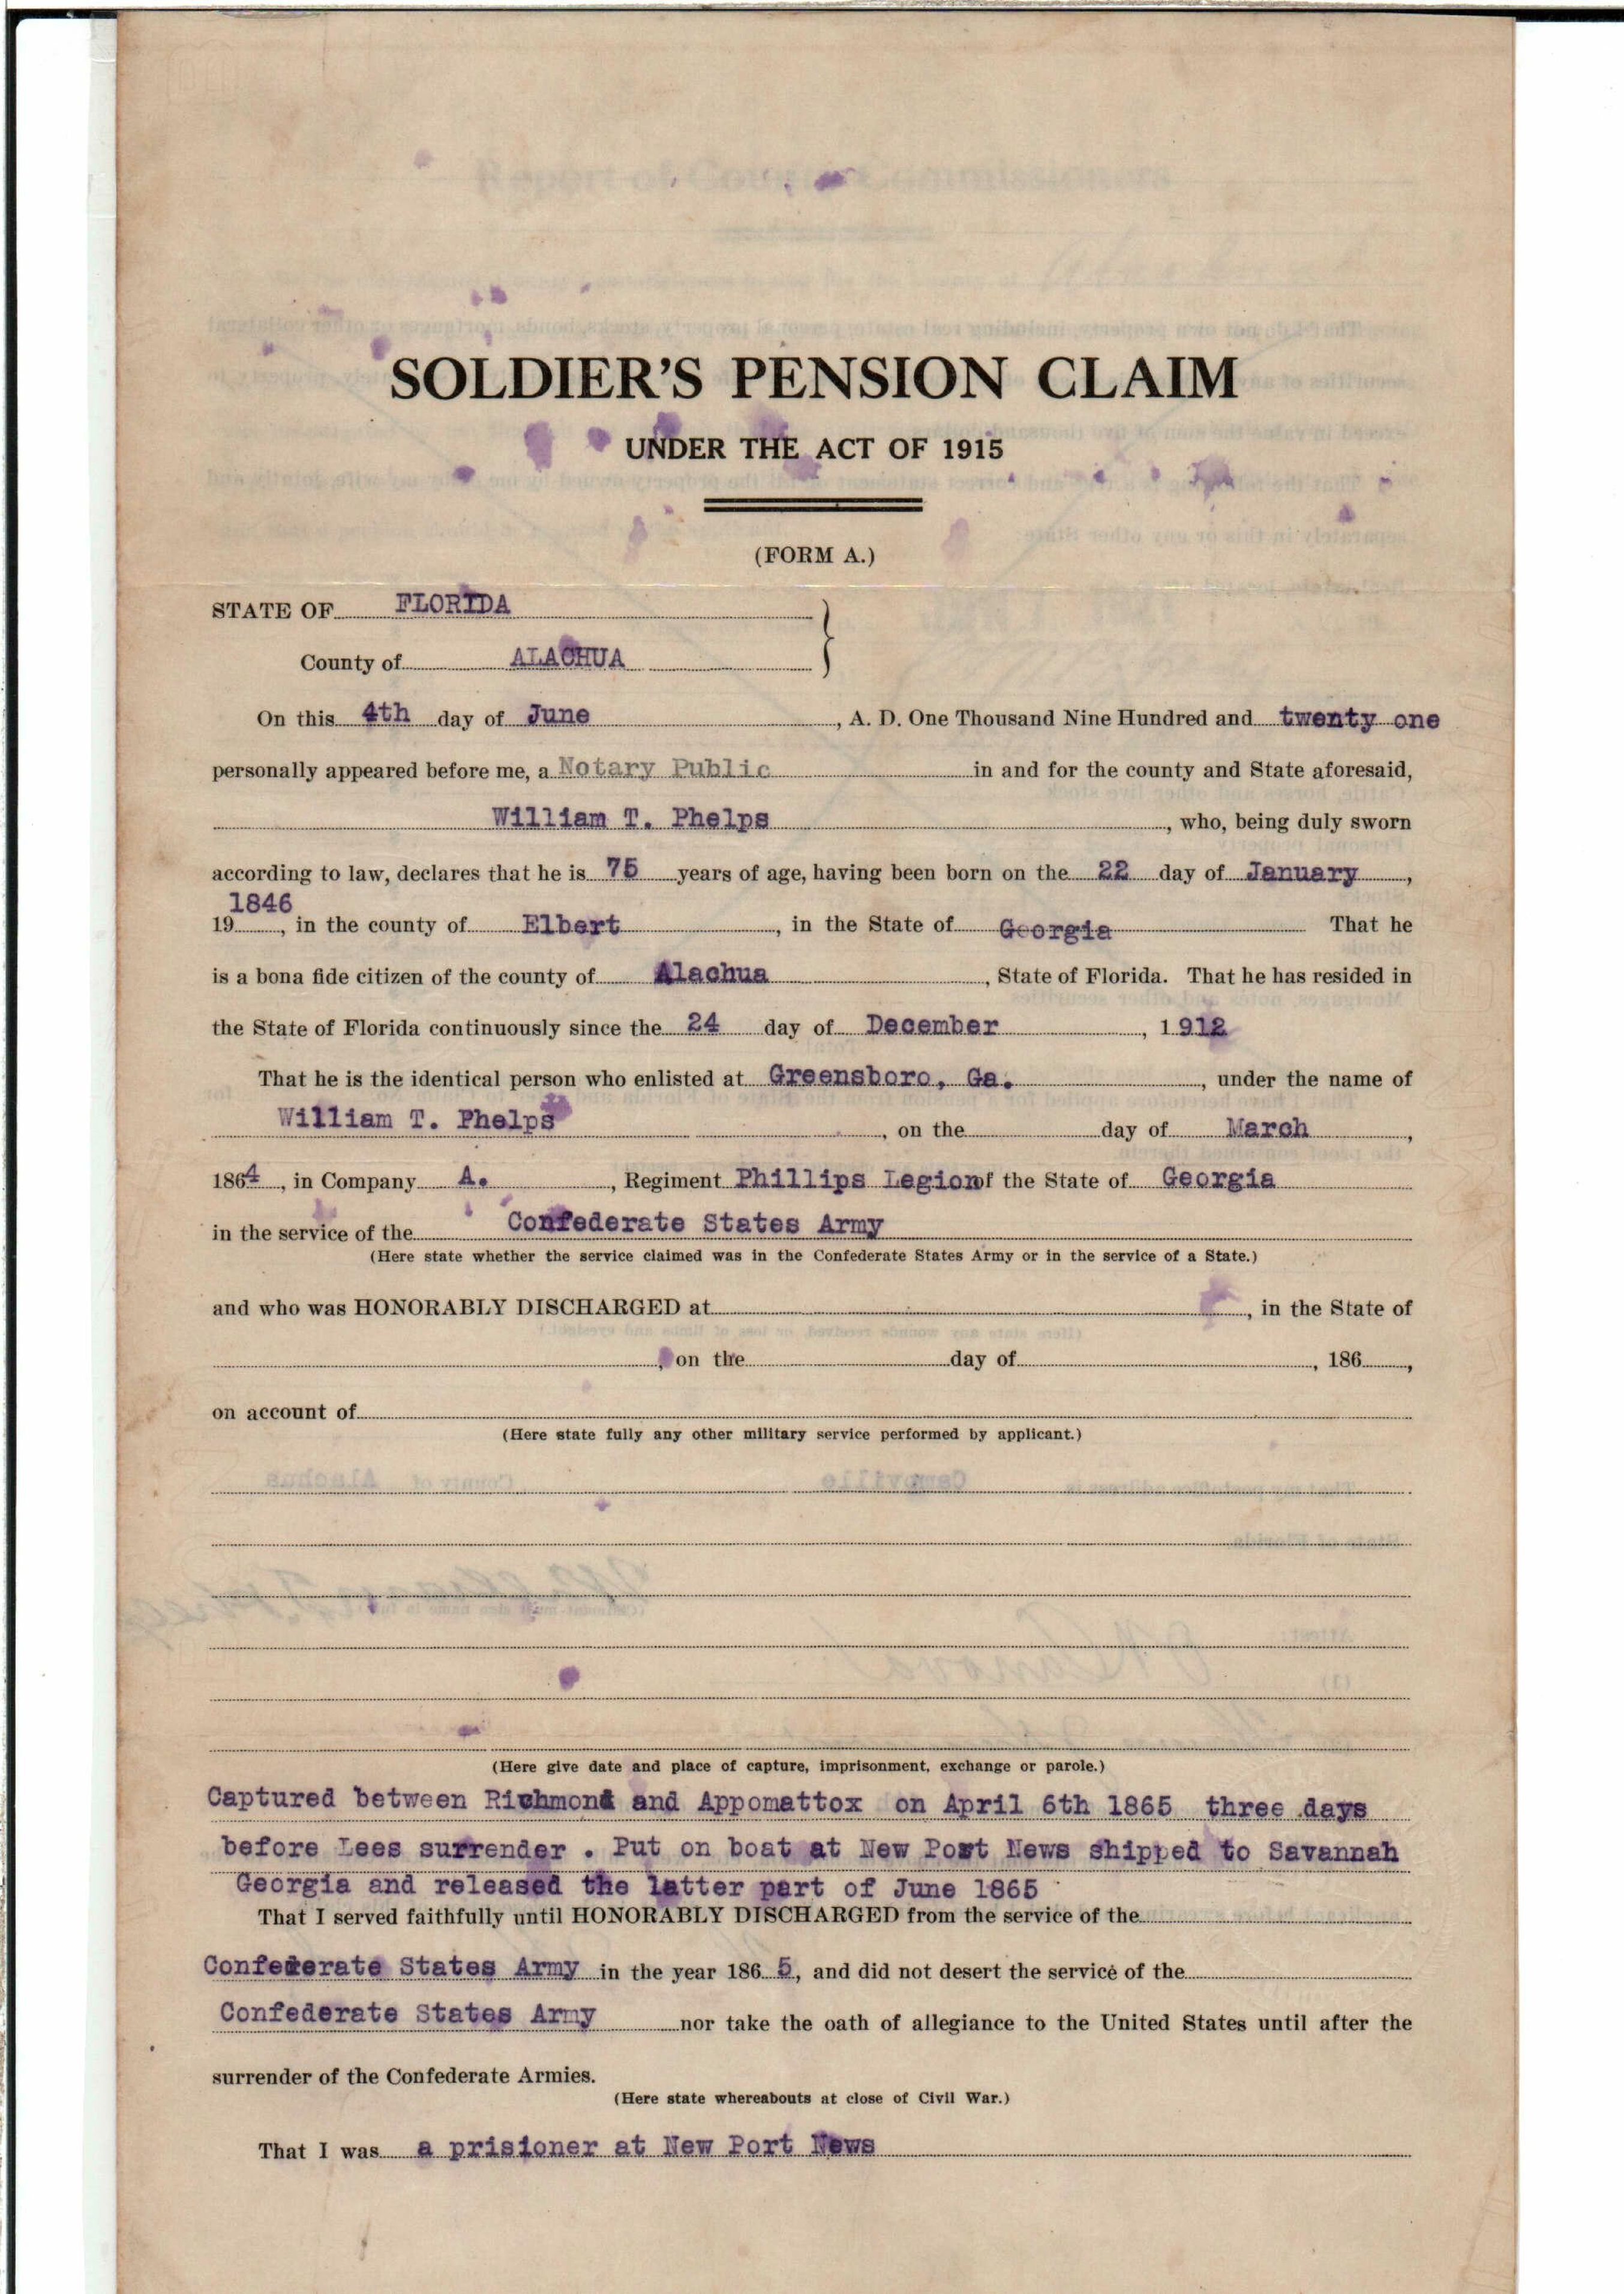 SOLDIER'S PENSION CLAIM
UNDER THE ACT OF 1915
(FORM A.)
STATE OF FLORIDA
County of ALACHUA
On this 4th day of June, A. D. One Thousand Nine Hundred and twenty one
personally appeared before me, a Notary Public in and for the county and State aforesaid,
William T. Phelps, who, being duly sworn
according to law, declares that he is 75 years of age, having been born on the 22 day of January,
1846
19, in the county of Elbert, in the State of Georgia That he
is a bona fide citizen of the county of Alachua, State of Florida. That he has resided in
the State of Florida continuously since the 24 day of December, 1912
That he is the identical person who enlisted at Greensboro, Ga., under the name of
William T. Phelps, on the day of March,
1864, in Company A., Regiment Phillips Legion of the State of Georgia
in the service of the Confederate States Army
(Here state whether the service claimed was in the Confederate States Army or in the service of a State.)
and who was HONORABLY DISCHARGED at, in the State of
, on the day of, 186,
on account of
(Here state fully any other military service performed by applicant.)
(Here give date and place of capture, imprisonment, exchange or parole.)
Captured between Richmond and Appomattox on April 6th 1865 three days
before Lees surrender . Put on boat at New Port News shipped to Savannah
Georgia and released the latter part of June 1865
That I served faithfully until HONORABLY DISCHARGED from the service of the
Confererate States Army in the year 1865, and did not desert the service of the
Confederate States Army nor take the oath of allegiance to the United States until after the
surrender of the Confederate Armies.
(Here state whereabouts at close of Civil War.)
That I was a prisioner at New Port News